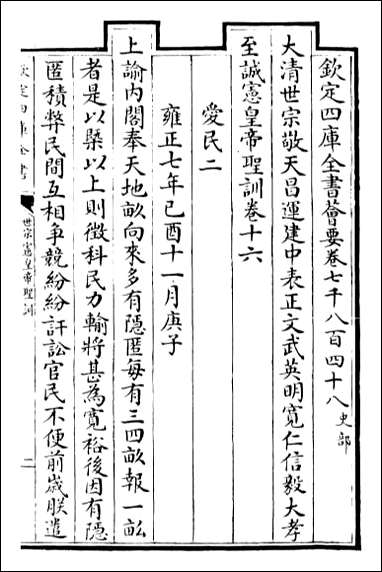 欽定四庫全書薈要卷七千八百四十八 史部
大清世宗敬天昌運建中表正文武英明寬仁信毅大孝
至誠憲皇帝聖訓卷十六
愛民二
雍正七年己酉十一月庚子
上諭内閣奉天地畝向來多有隱匿每有三四畝報一畝
者是以槩以上則徵科民力輸將甚為寬裕後因有隱
匿積弊民間互相爭競紛紛訐訟官民不便前歲朕遣
欽定四庫全書
世宗憲皇帝聖訓
二